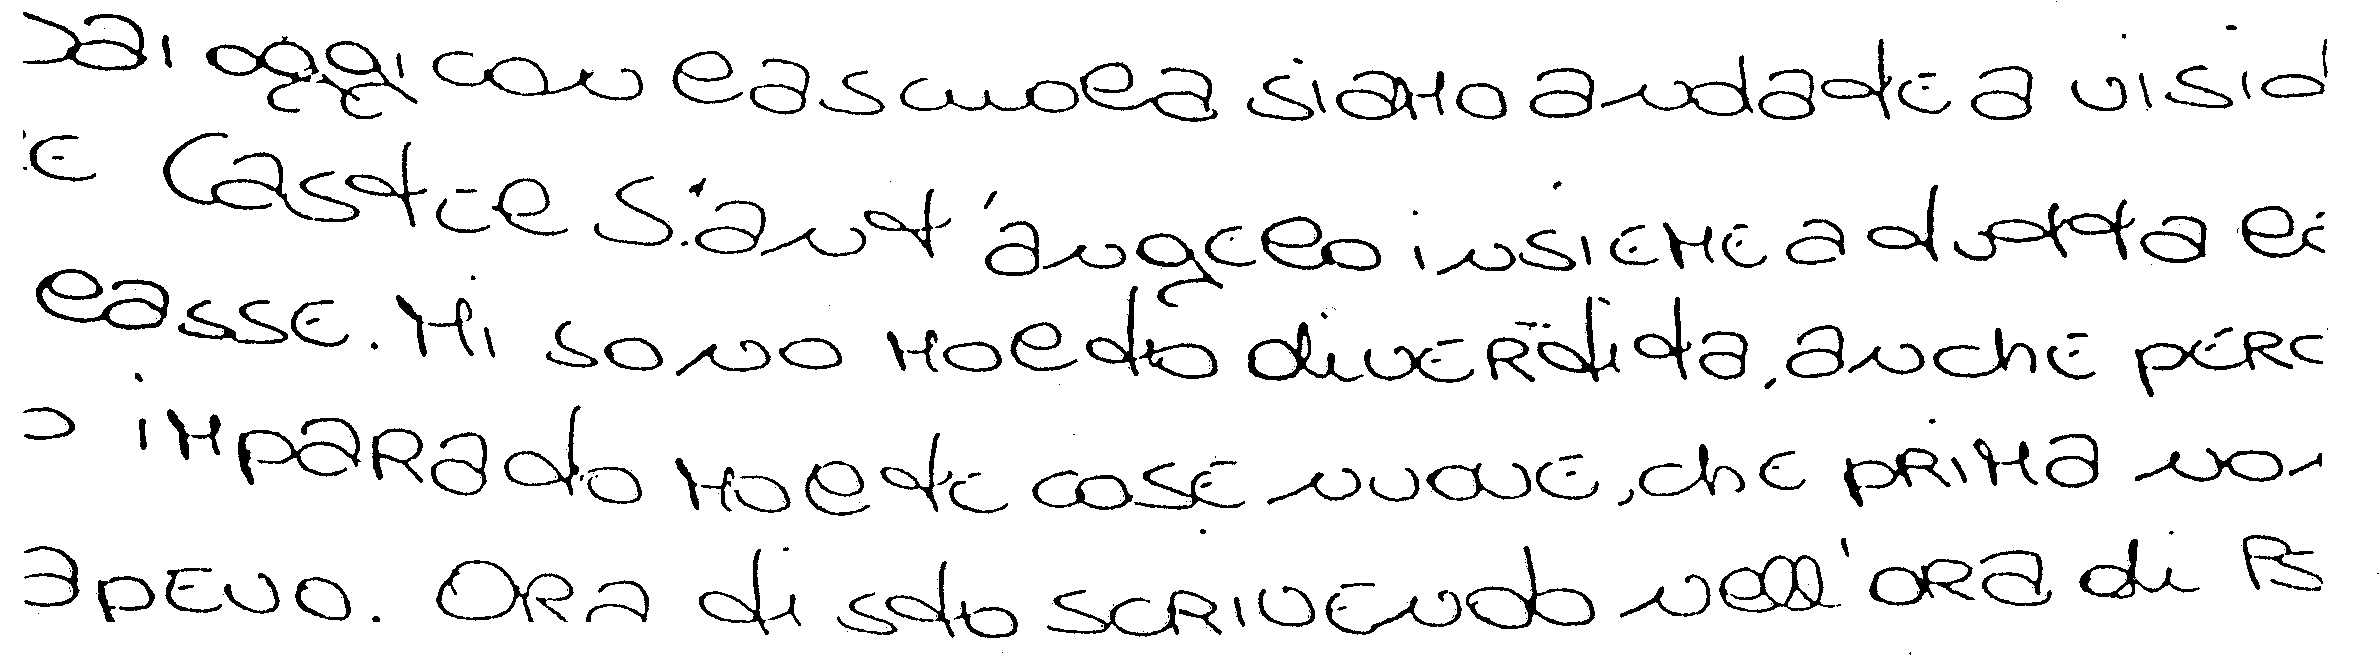 Sai oggi con la scuola siamo andate a visit
e Castel Sant'angelo insieme a tutta la
lasse. Mi sono molto divertita, anche perc
o imparato molte cose nuove, che prima non
apevo. Ora ti sto scrivendo nell'ora di Ps